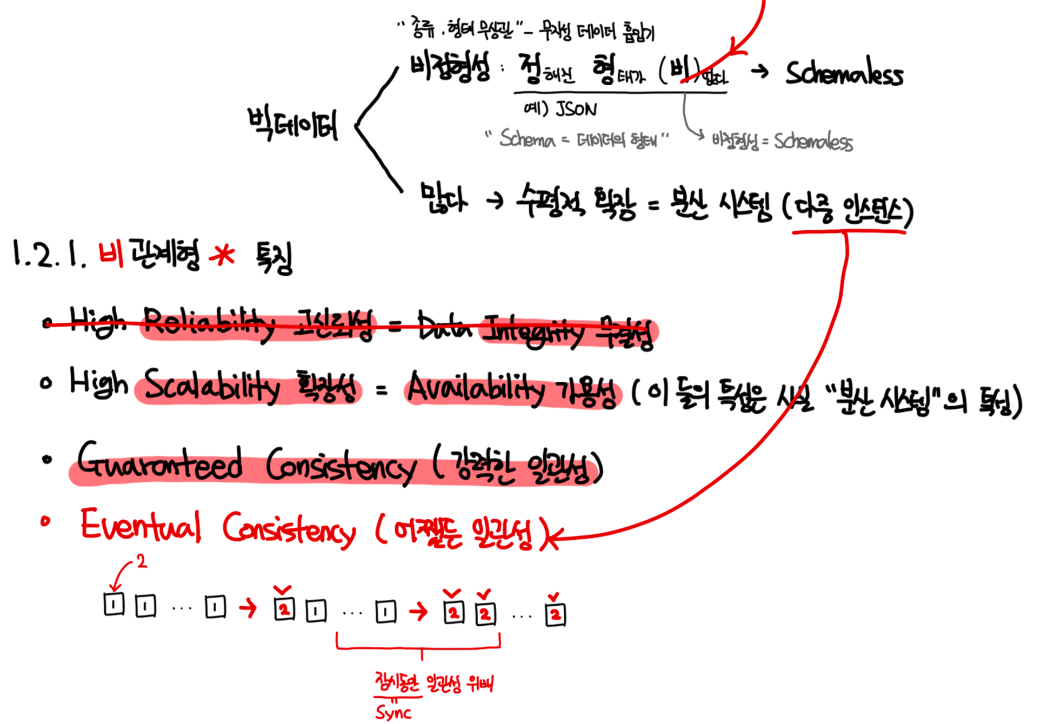 "종류, 형태 무상관" - 무작성 데이터 흡입기
비정형성 : 정해진 형태가 (비)없다 → Schemaless
예) JSON
빅데이터
"Schema = 데이터의 형태"
비정형성 = Schemaless
많다 → 수평적 확장 = 분산 시스템 (다중 인스턴스)
1.2.1. 비관계형 * 특징
• High Reliability 고신뢰성 = Data Integrity 무결성
• High Scalability 확장성 = Availability 가용성 (이 들의 특성은 사실 "분산 시스템"의 특성)
• Guaranteed Consistency (강력한 일관성)
• Eventual Consistency (어쨌든 일관성)
2
1 1 ... 1 → 2 1 ... 1 → 2 2 ... 2
잠시동안 일관성 위배
"
Sync